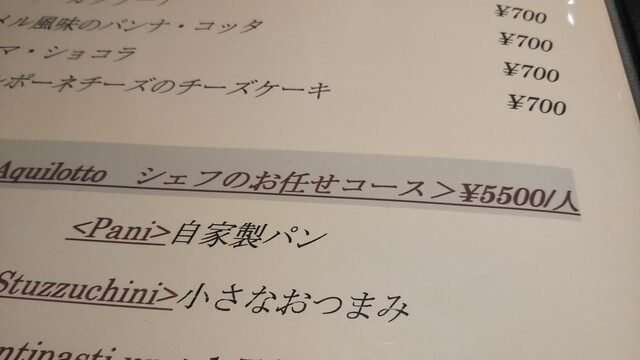 ¥700
メル風味のパンナ・コッタ ¥700
マ・ショコラ ¥700
ポーネチーズのチーズケーキ ¥700
Aquilotto シェフのお任せコース＞¥5500/人
<Pani>自家製パン
Stuzzuchini>小さなおつまみ
ntipasti